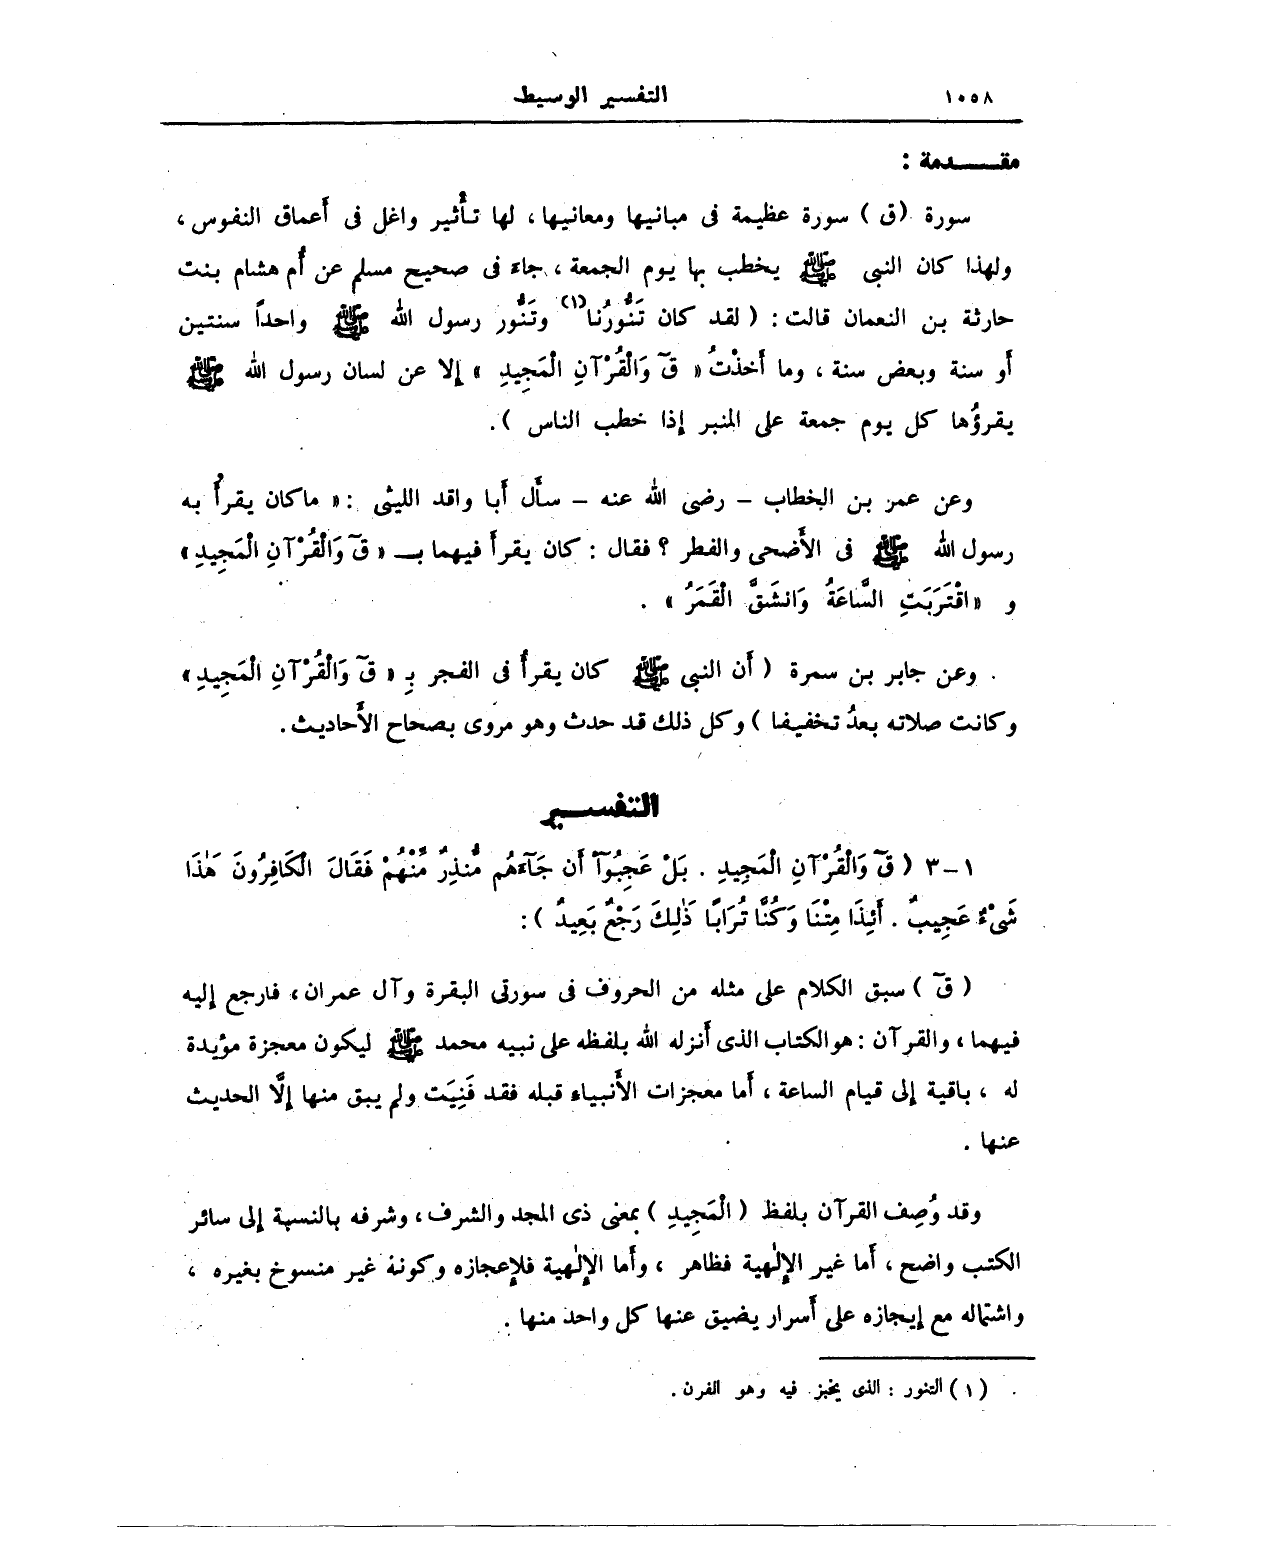 ١٠٥٨ التفسير الوسيط
مقـــدمة :
سورة (ق) سورة عظيمة فى مبانيها ومعانيها، لها تأثير واغل فى أعماق النفوس،
ولهذا كان النبى ﷺ يخطب بها يوم الجمعة، جاء فى صحيح مسلم عن أُم هشام بنت
حارثة بن النعمان قالت: ( لقد كان تَنُّورُنا(١) وتَنُّور رسول الله ﷺ واحداً سنتين
أو سنة وبعض سنة، وما أَخذْتُ « قٓ وَالْقُرْآنِ الْمَجِيدِ » إلا عن لسان رسول الله ﷺ
يقرؤُها كل يوم جمعة على المنبر إذا خطب الناس ).
وعن عمر بن الخطاب – رضى الله عنه – سأَل أَبا واقد الليثى :« ماكان يقرأُ به
رسول الله ﷺ فى الأَضحى والفطر ؟ فقال : كان يقرأ فيهما بـ « قٓ وَالْقُرْآنِ الْمَجِيدِ »
و «اقْتَرَبَتِ السَّاعَةُ وَانشَقَّ الْقَمَرُ» .
وعن جابر بن سمرة ( أَن النبى ﷺ كان يقرأُ فى الفجر بِـ « قٓ وَالْقُرْآنِ الْمَجِيدِ»
وكانت صلاته بعدُ تخفيفا ) وكل ذلك قد حدث وهو مروى بصحاح الأَحاديث.
التفســير
١-٣ ( قٓ وَالْقُرْآنِ الْمَجِيدِ . بَلْ عَجِبُوٓاْ أَن جَآءَهُم مُّنذِرٌ مِّنْهُمْ فَقَالَ الْكَافِرُونَ هَٰذَا
شَىْءٌ عَجِيبٌ . أَئِذَا مِتْنَا وَكُنَّا تُرَابًا ذَٰلِكَ رَجْعٌ بَعِيدٌ ):
( قٓ ) سبق الكلام على مثله من الحروف فى سورتى البقرة وآل عمران، فارجع إليه
فيهما، والقرآن : هو الكتاب الذى أَنزله الله بلفظه على نبيه محمد ﷺ ليكون معجزة مؤيدة
له ، باقية إلى قيام الساعة، أَما معجزات الأَنبياء قبله فقد فَنِيَت ولم يبق منها إلَّا الحديث
عنها .
وقد وُصِف القرآن بلفظ ( الْمَجِيدِ ) بمعنى ذى المجد والشرف، وشرفه بالنسبة إلى سائر
الكتب واضح، أَما غير الإلٰهية فظاهر ، وأَما الإلٰهية فلإعجازه وكونه غير منسوخ بغيره ،
واشتماله مع إيجازه على أَسرار يضيق عنها كل واحد منها .
(١) التنور : الذى يخبز فيه وهو الفرن .